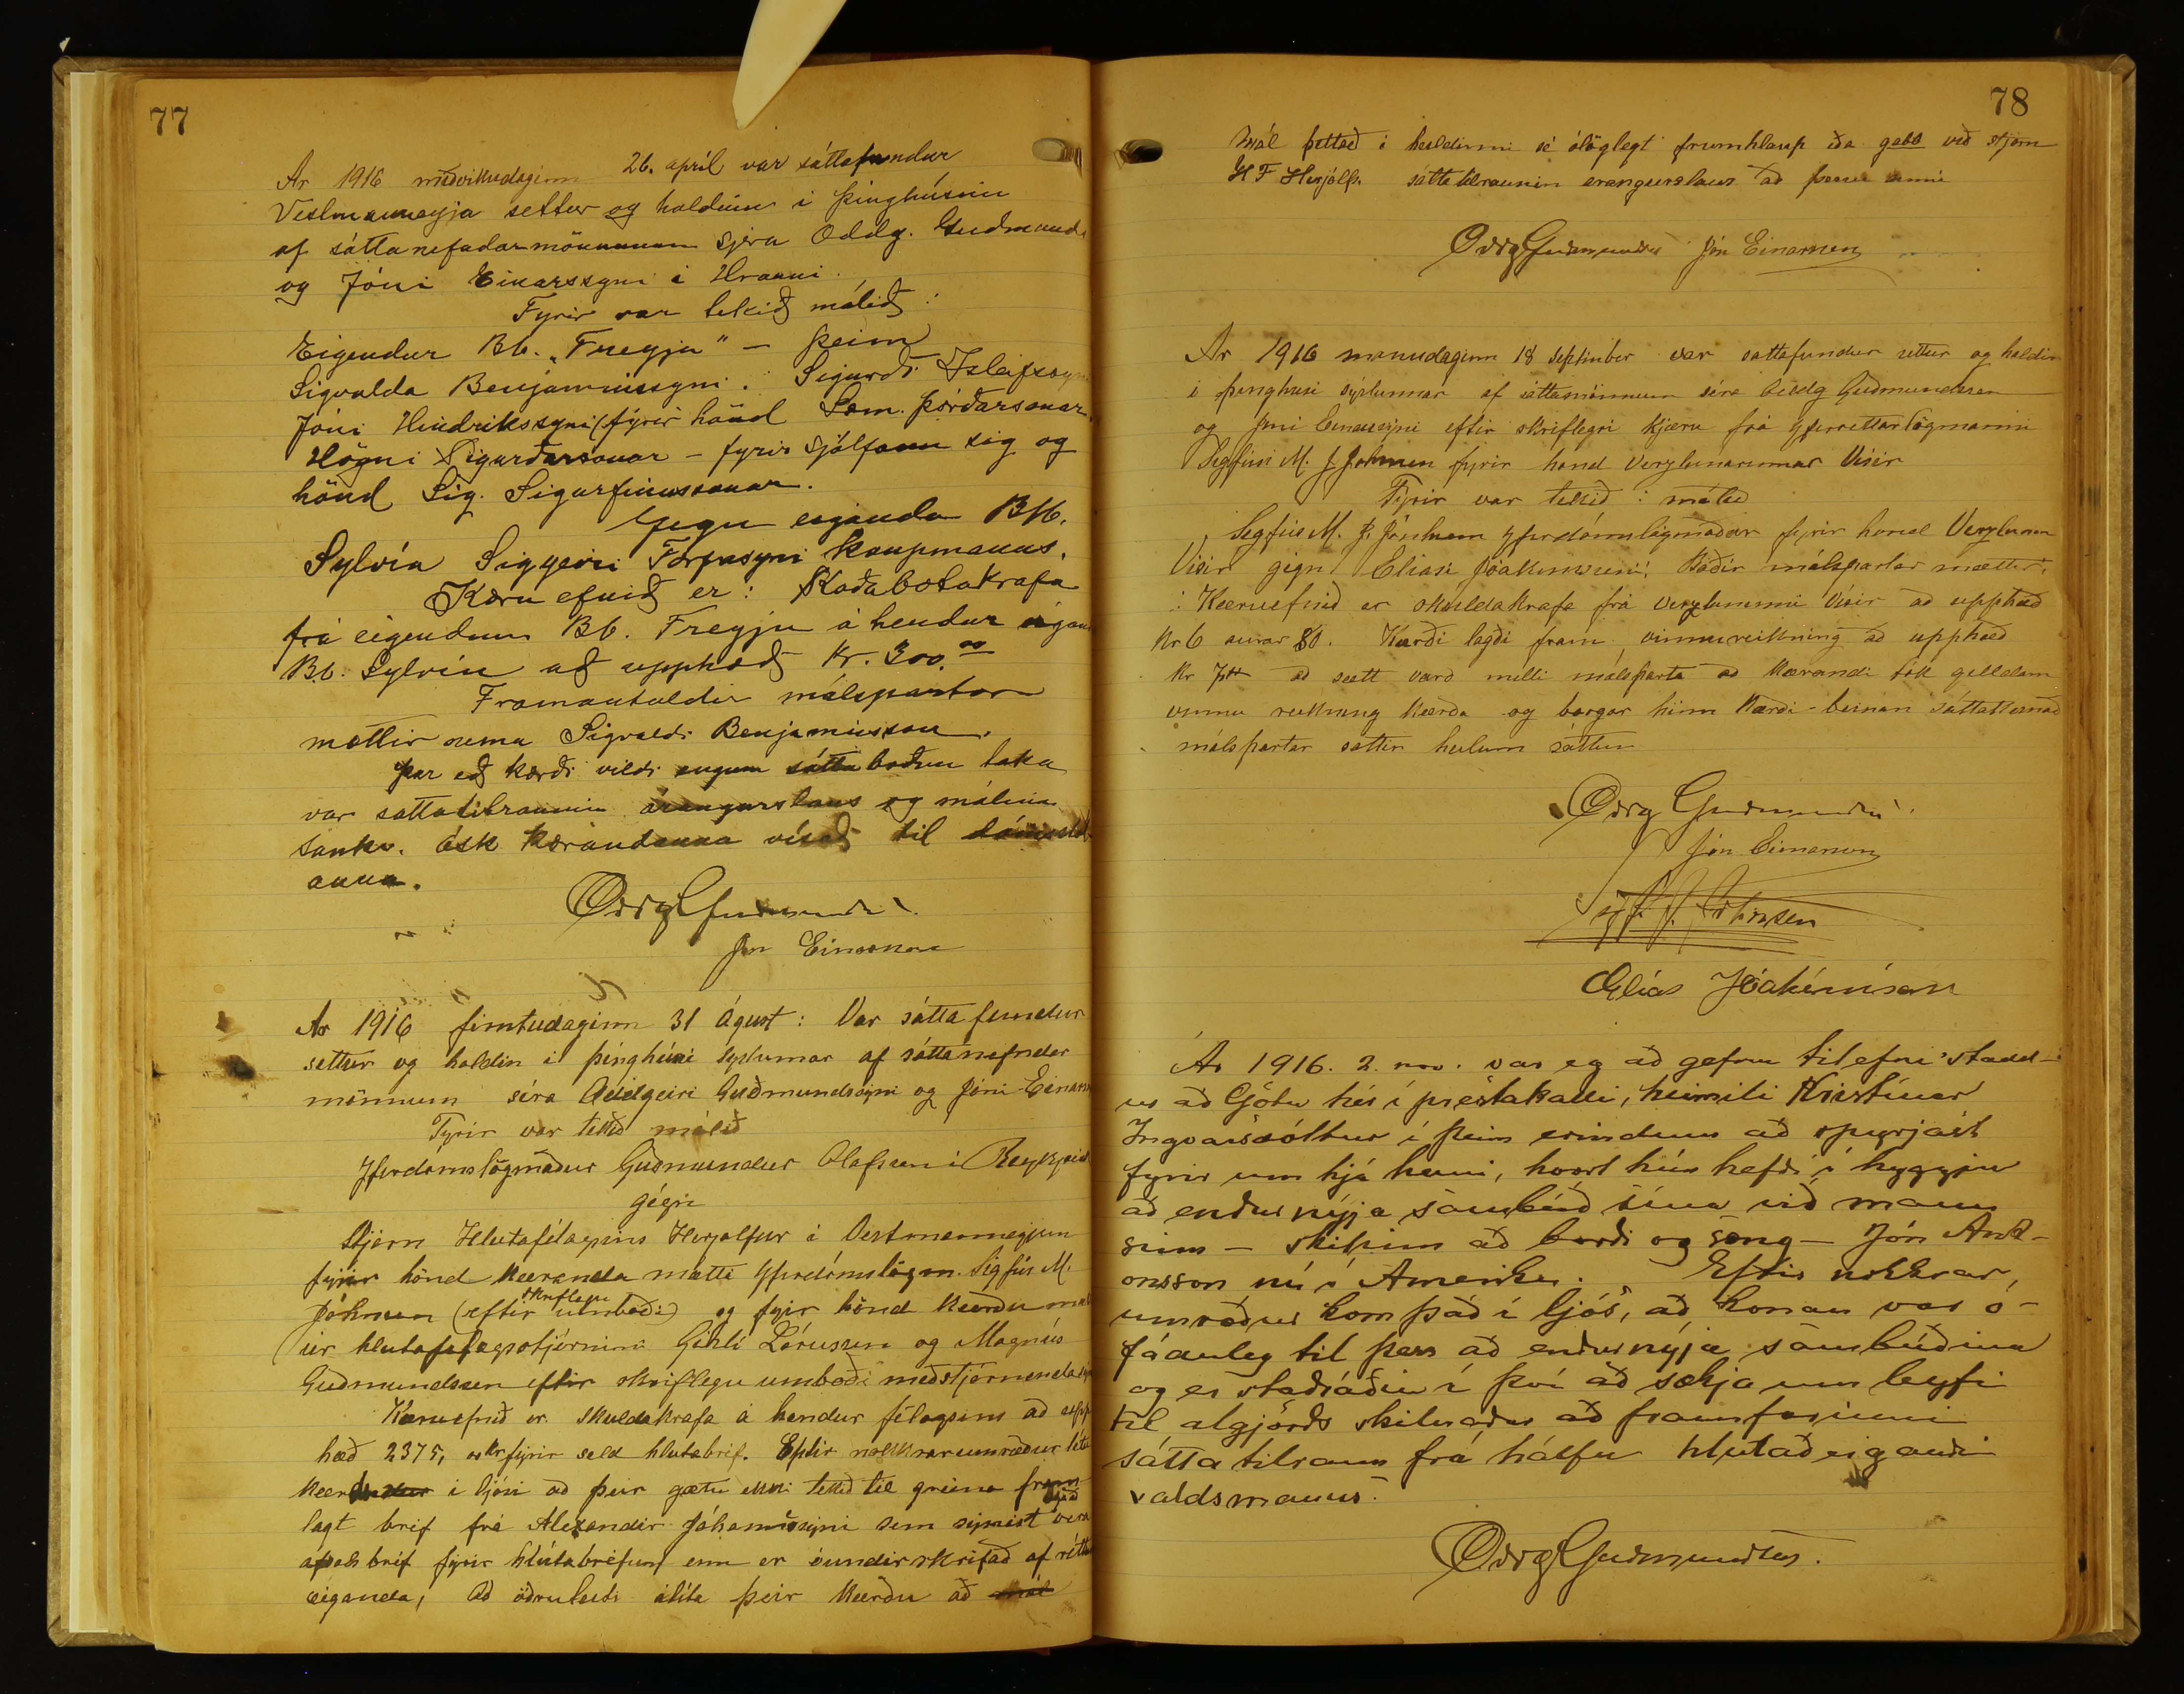 77
Ár 1916 miðvikudaginn 26. apríl var sáttafundur
Vestmannaeyja settur og haldinn i þinghúsinu
af sáttanefndarmönnunum sjera Oddg. Guðmunds
og Jóni Einarssyni á Hrauni.
Fyrir var tekið málið:
Eigendur Bb. "Freyja" — þeim
Sigvalda Benjaminssyni. Sigurði Isleifssyni
Jóni Hindrikssyni (fyrir hönd Sæm. Þórðarsonar.
Högni Sigurðarsonar – fyrir sjálfann sig og
hönd Sig. Sigurfinnssonar.
Gegn eiganda Bb.
Sylvía Siggeiri Torfasyni Kaupmanns.
Kæru efnið er: Skaðabótakrafa
frá eigendum Bb. Freyju á hendur eigan
Bb. Sylvíu að upphæð Kr. 300.00
Framantaldir málspartar
mættir nema Sigvaldi Benjaminsson.
Þar eð kærði vildi engum sáttaboðum taka
var sáttatilraunin árangurslaus og málinu
samkv. ósk kærandanna vísað til dómstól
anna.
Oddg Guðmundss.
Jón Einarsson
Ár 1916 fimtudaginn 31 ágúst: Var sáttafundur
settur og haldin i þinghúsi syslunnar af sáttanefndar
mönnum séra Oddgeiri Guðmundssyni og Jóni Einarss
Fyrir var tekið málið
Yfirdómslögmaður Guðmundur Olafsson i Reykjavík
gegn
Stjorn Hlutafélagsins Herjolfur i Vestmannaeyjum
fyrir hönd kæranda mætti yfirdómslögm. Sigfús M.
skriflegu
Johnsen (eftir umboði) og fyrir hönd kærðu mæt
ir hlutafelagsstjórnin Gísli Lárusson og Magnús
Guðmundsson eftir skriflegu umboði meðstjórnenda
Kæruefnið er skuldakrafa á hendur félagsins að upp
hæð 2375, kr fyrir seld hlutabref. Eptir nokkrar umræður létu
kærðu i ljósi að þeir gætu ekki tekið til greina fram
lagt bref frá Alexander Jóhannssyni sem synist vera
afsals bréf fyrir hlutabréfum enn er óundirskrifað af rétt
eiganda, Að öðruleiti álíta þeir kærðu að mál
78
Mál þettað i heildinni sé ólöglegt frumhlaup eða gabb við stjorn
H F Herjólfs. sáttatilraunin árangurslaus að þessu sinni
Oddg Guðmundss Jón Einarsson
Ár 1916 manudaginn 18 september var sattafundur settur og haldin
i þinghusi syslunnar af sáttamönnum séra Oddg Guðmundssen
og Jóni Einarssyni eftir skriflegri kjæru frá yfirréttarlögmanni
Sigfúsi M. J Johnsen fyrir hond Verzlunarinnar Visir
Fyrir var tekið: málið
Sigfús M. J. Jónhsen yfirdómslögmaður fyrir hond Verzlunin
Visir gegn Eliasi Jóakimssyni. Báðir málspartar mættir.
: Kæruefnið er skuldakrafa frá verzluninni Visir að upphæð
Kr 6 aurar 80. Kærði lagði fram vinnureikning að upphæð
að sætt varð milli málsparta að kærandi tók gilldann
vinnu reikning kærða og borgar hinn kærði
málspartar sattir heilum sáttum
Oddg Guðmundss.
Jón Einarsson
Sigf. M. Johnsen
Elías Jóakimsson
Ár 1916. 2. nov. var eg að gefnu tilefni stadd-
ur að Götu hér i prestakalli, heimili Kristínar
Ingvarsdóttur í þeim erindum að spyrjast
fyrir um hjá henni, hvort hún hefði í hyggju
að endurnýja sambúð sína við mann
sinn – skilinn að borði og sæng – Jón And-
onsson nú í Ameriku. Eftir nokkrar
umræður kom það í ljós, að konan var ó-
fáanleg til þess að endurnýja sambúðina
og er staðráðin í því að sækja um leyfi
til algjörðs skilnaðar að framfarinni
sátta tilraun frá hálfu hlutaðeigandi
valdsmanns.
Oddg Guðmundss.